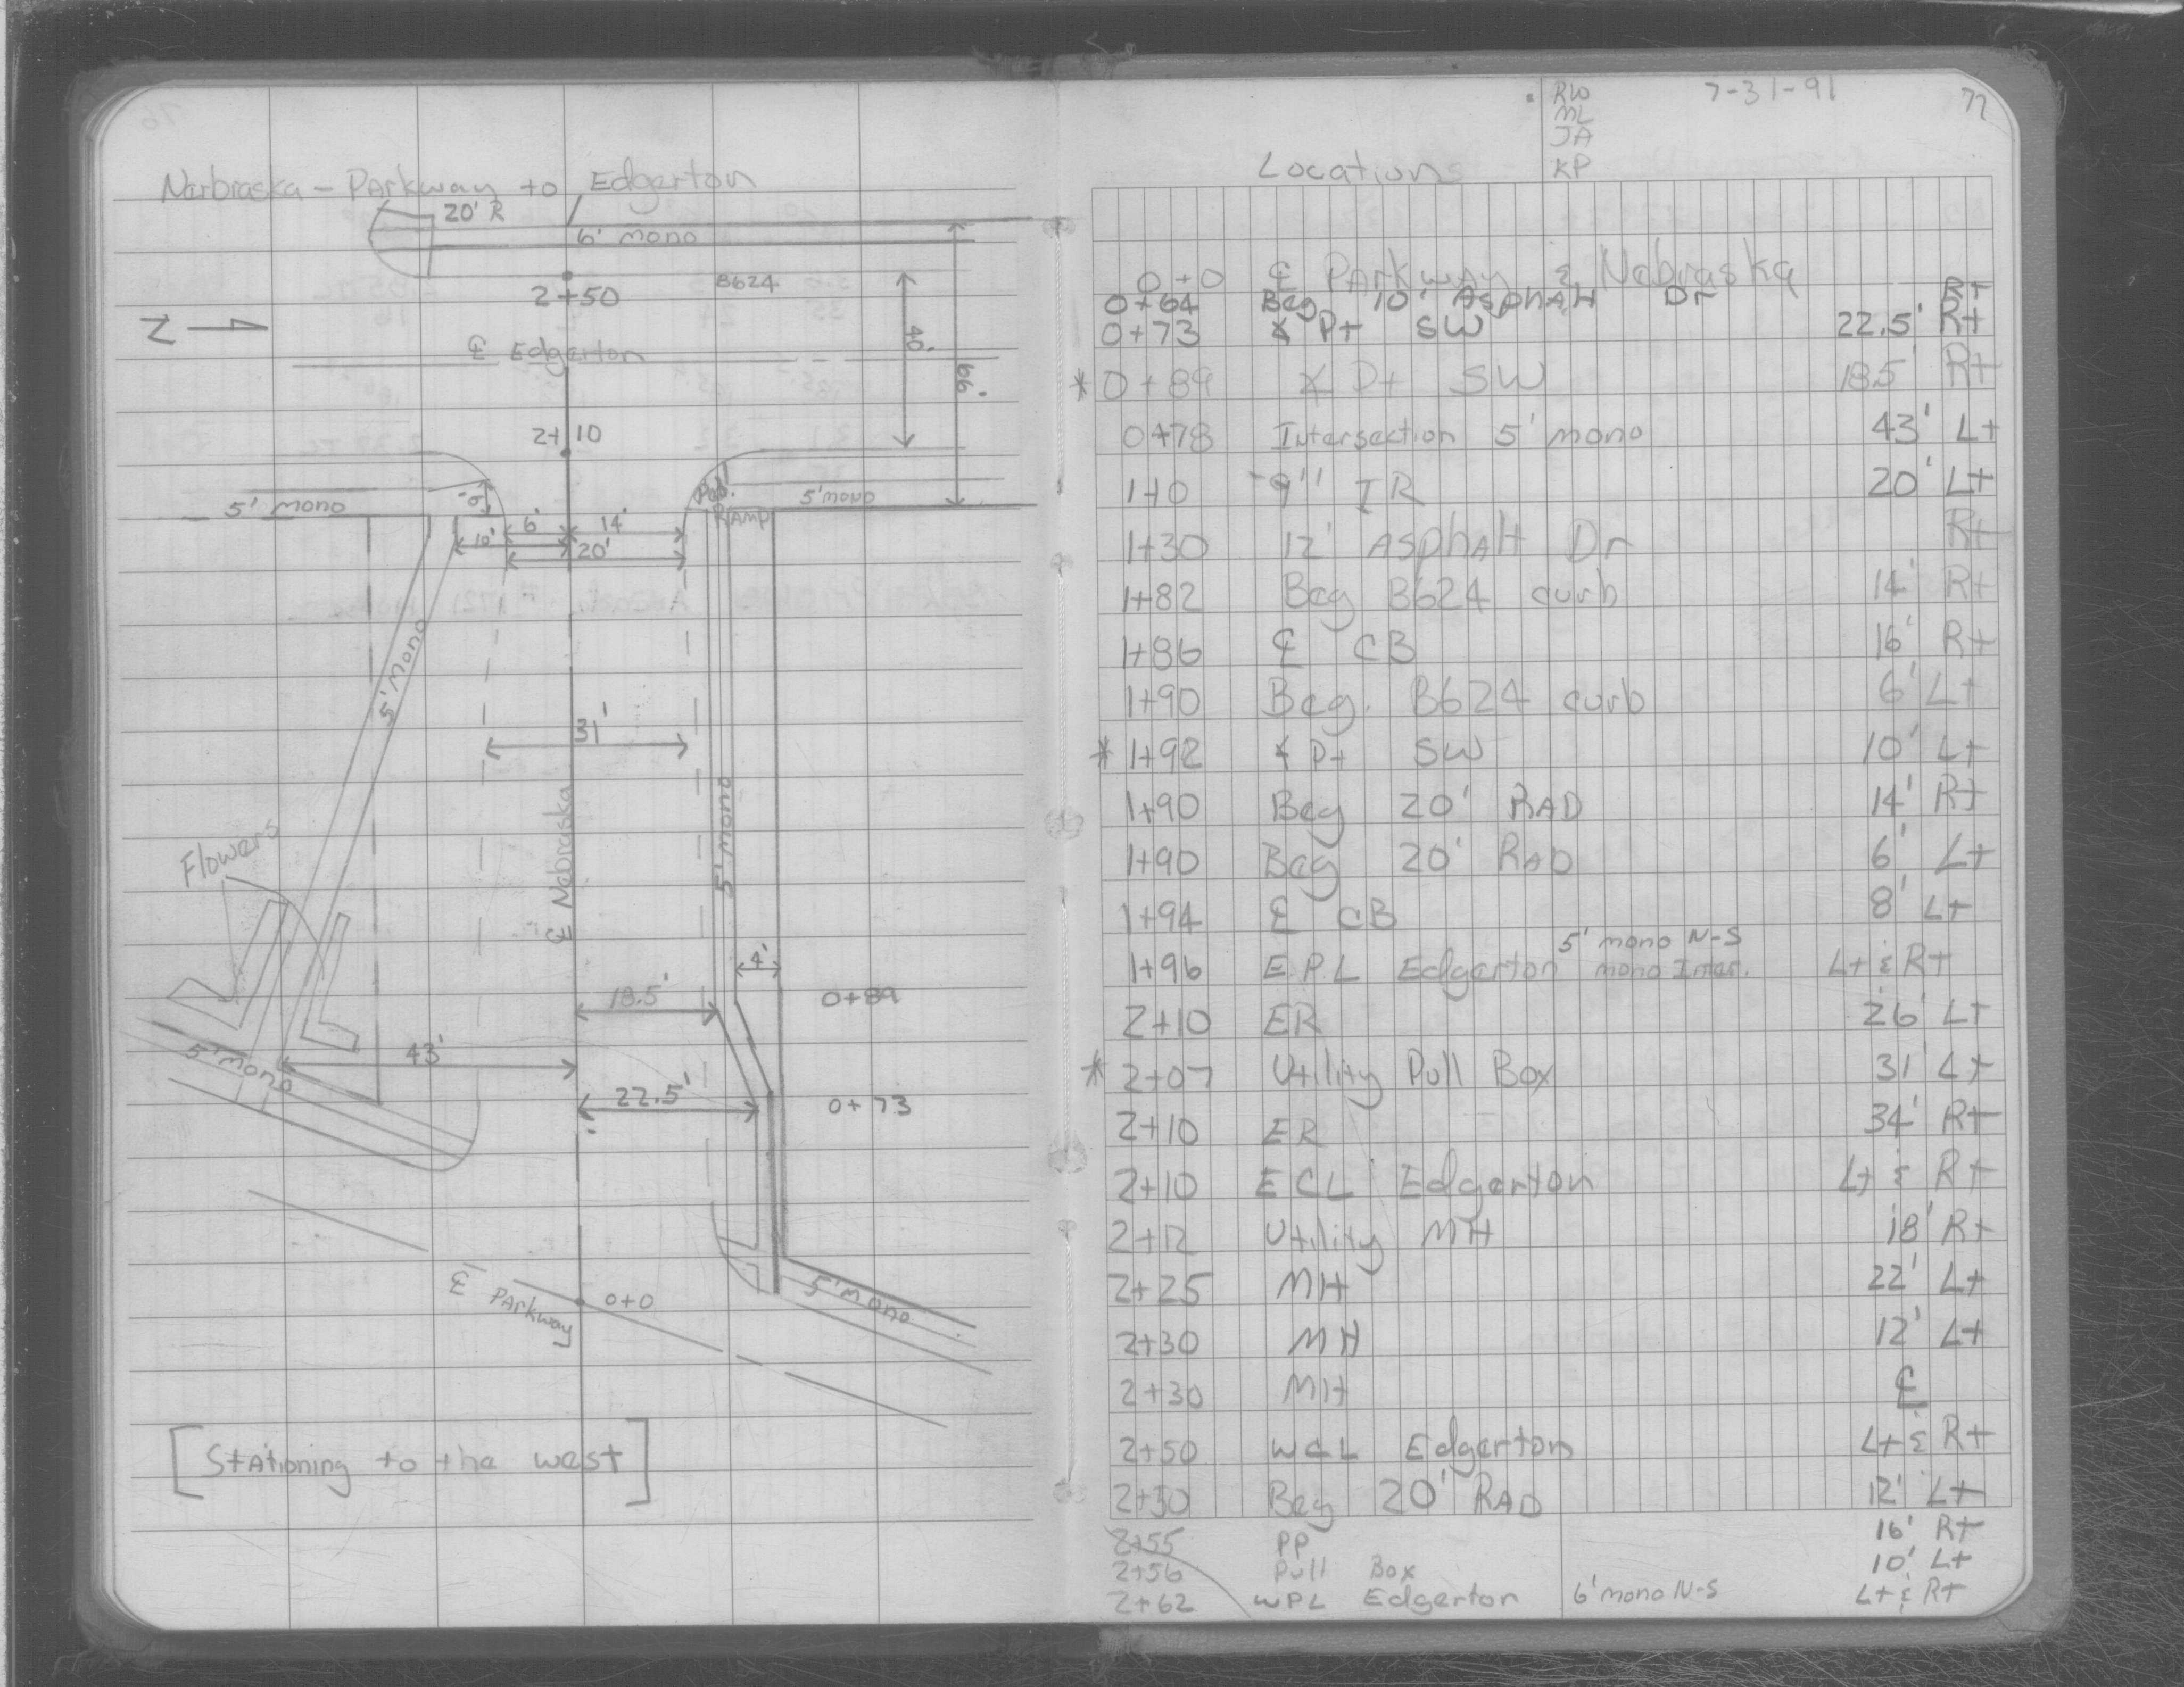 Narbraska - PArkway to Edgerton
20' R
6' mono
2+50
B624
N
℄ Edgerton
40'
66'
2+10
5' mono
6'
14'
10'
20'
Ped.
RAmp
5' mono
5' mono
31'
℄ Nebraska
5' mono
Flowers
4'
18.5'
0+89
43'
5' mono
22.5'
0+73
℄ PArkway
0+0
5' mono
[StAtioning to the west]
RW
ML
JA
KP
7-31-91
77
Locations
0+0 ℄ PArkway & Nebraska
0+64 Beg 10' AsphAlt Dr Rt
0+73 ∡ Pt SW 22.5' Rt
* 0+89 ∡ Pt SW 18.5' Rt
0+78 Intersection 5' mono 43' Lt
1+0 9" TR 20' Lt
1+30 12' AsphAlt Dr Rt
1+82 Beg B624 curb 14' Rt
1+86 ℄ CB 16' Rt
1+90 Beg. B624 curb 6' Lt
* 1+92 ∡ Pt SW 10' Lt
1+90 Beg 20' RAD 14' Rt
1+90 Beg 20' RAD 6' Lt
1+94 ℄ CB 8' Lt
5' mono N-S
1+96 EPL Edgerton mono Inter. Lt & Rt
2+10 ER 26' Lt
* 2+07 Utility Pull Box 31' Lt
2+10 ER 34' Rt
2+10 ECL Edgerton Lt & Rt
2+12 Utility MH 18' Rt
2+25 MH 22' Lt
2+30 MH 12' Lt
2+30 MH ℄
2+50 WCL Edgerton Lt & Rt
2+50 Beg 20' RAD 12' Lt
2+55 PP 16' Rt
2+56 Pull Box 10' Lt
2+62 WPL Edgerton 6' mono N-S Lt & Rt